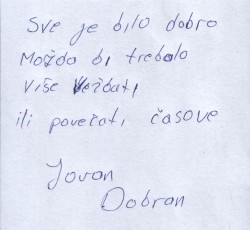 Sve je bilo dobro
Možda bi trebalo
Više vežbati
ili povećati časove
Jovan
Dobran